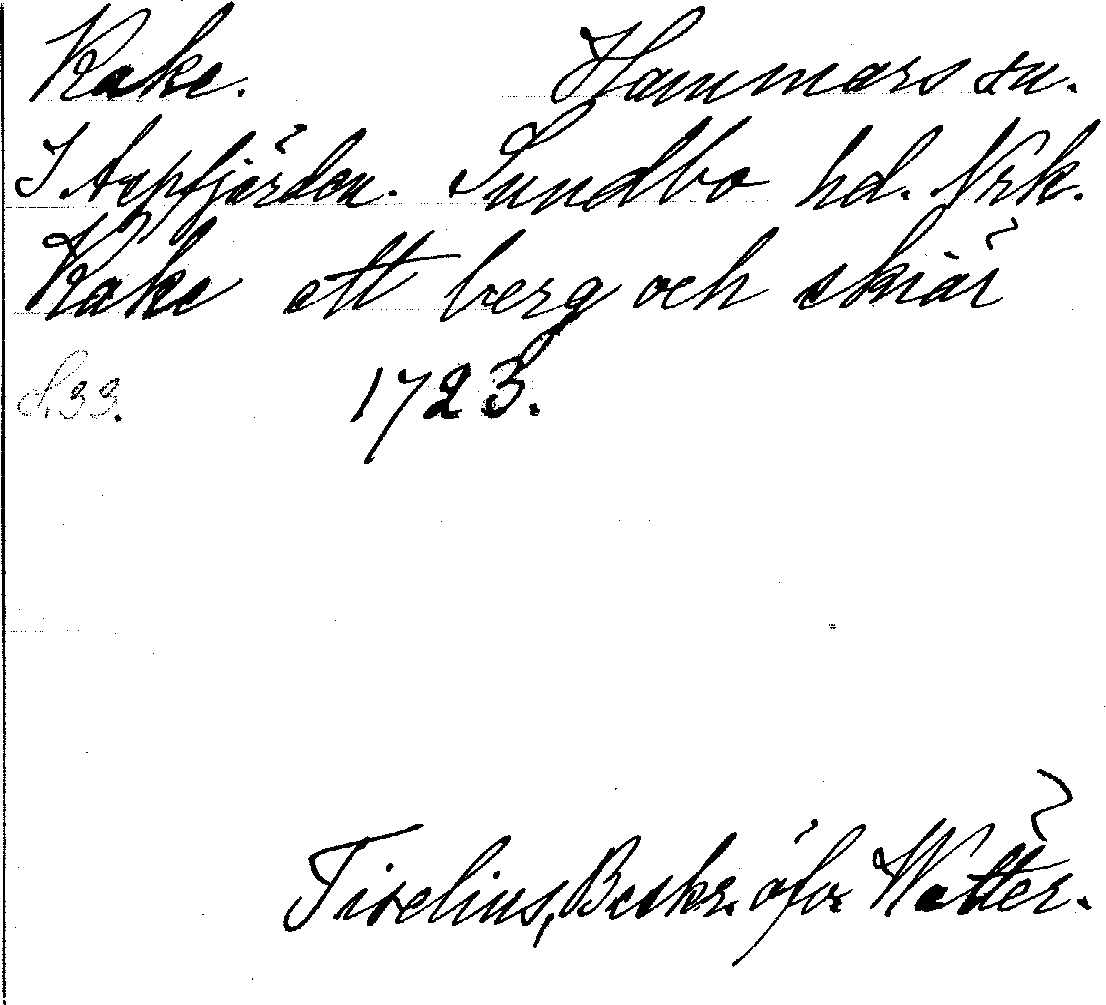 Kake. Hammars sn.
I Aspfjärden. Sundbo hd. Nrk.
Kake ett berg och skiär
S. 33. 1723.
Tiselius, Beskr. öfv. Wätter.